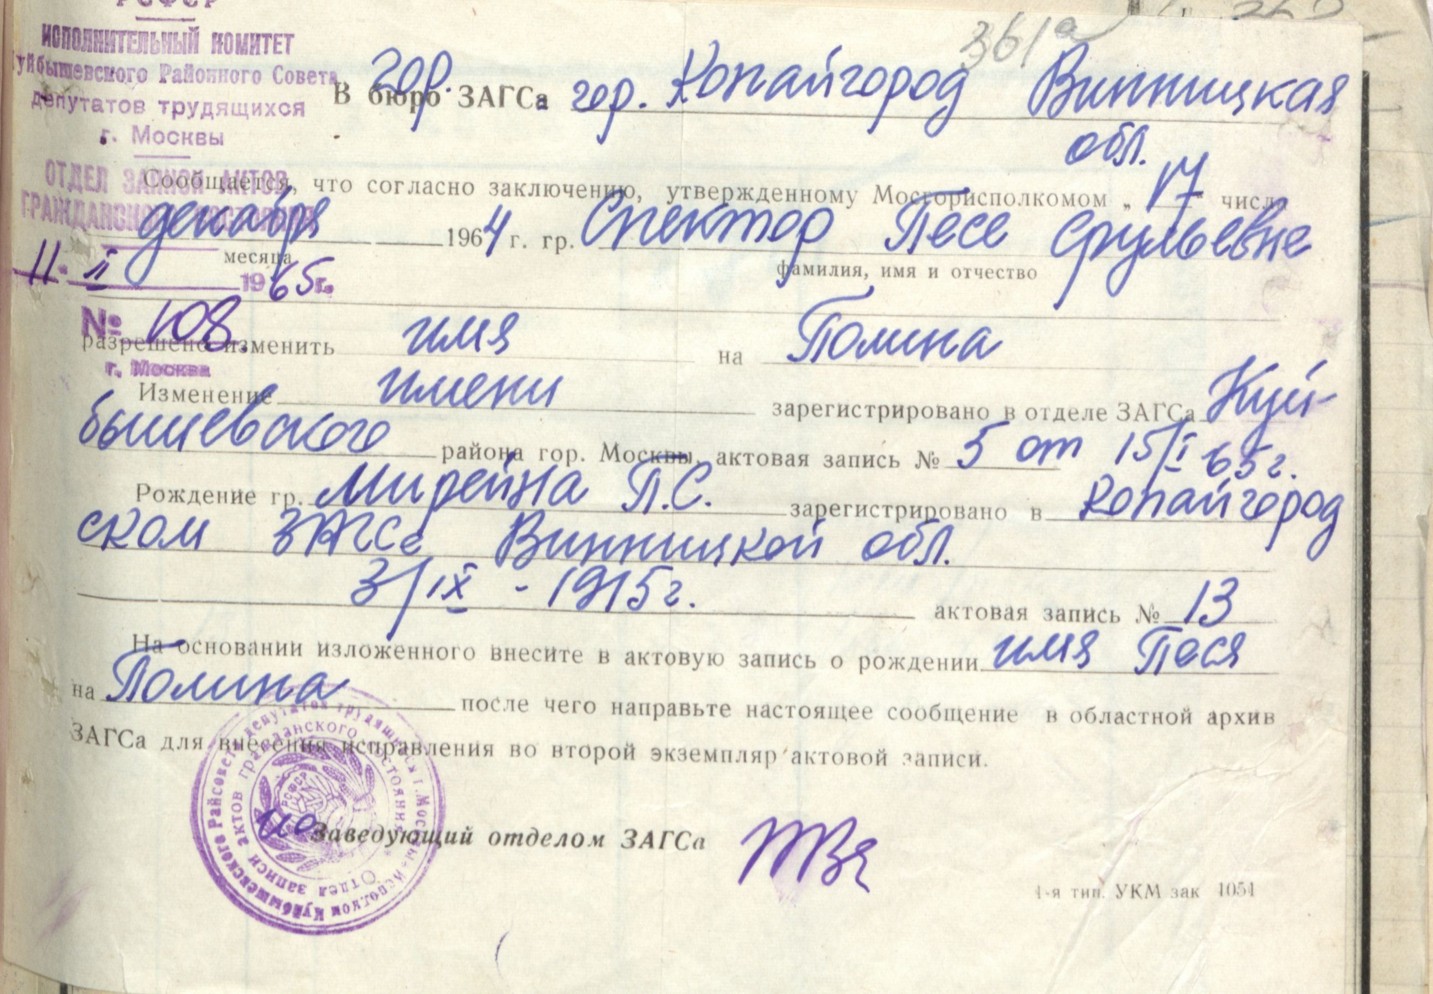 РСФСР
ИСПОЛНИТЕЛЬНЫЙ КОМИТЕТ
Куйбышевского Районного Совета
депутатов трудящихся
г. Москвы
ОТДЕЛ ЗАПИСИ АКТОВ
ГРАЖДАНСКОГО СОСТОЯНИЯ
11. II 1965г.
№ 108.
г. Москва
361а
гор.
В бюро ЗАГСа гор. Копайгород Винницкая
обл.
Сообщается, что согласно заключению, утвержденному Мосгорисполкомом „ 17 числ
декабря 1964 г. гр. Спектор Песе Срульевне
месяца фамилия, имя и отчество
разрешено изменить имя на Полина
Изменение имени зарегистрировано в отделе ЗАГСа Куй-
бышевского района гор. Москвы, актовая запись № 5 от 15/I 65г.
Рождение гр. Мирейна П.С. зарегистрировано в Копайгород
ском ЗАГСе Винницкой обл.
3/IX - 1915г. актовая запись № 13
На основании изложенного внесите в актовую запись о рождении имя Песя
на Полина после чего направьте настоящее сообщение в областной архив
ЗАГСа для внесения исправления во второй экземпляр актовой записи.
ио Заведующий отделом ЗАГСа
4-я тип. УКМ зак 1054